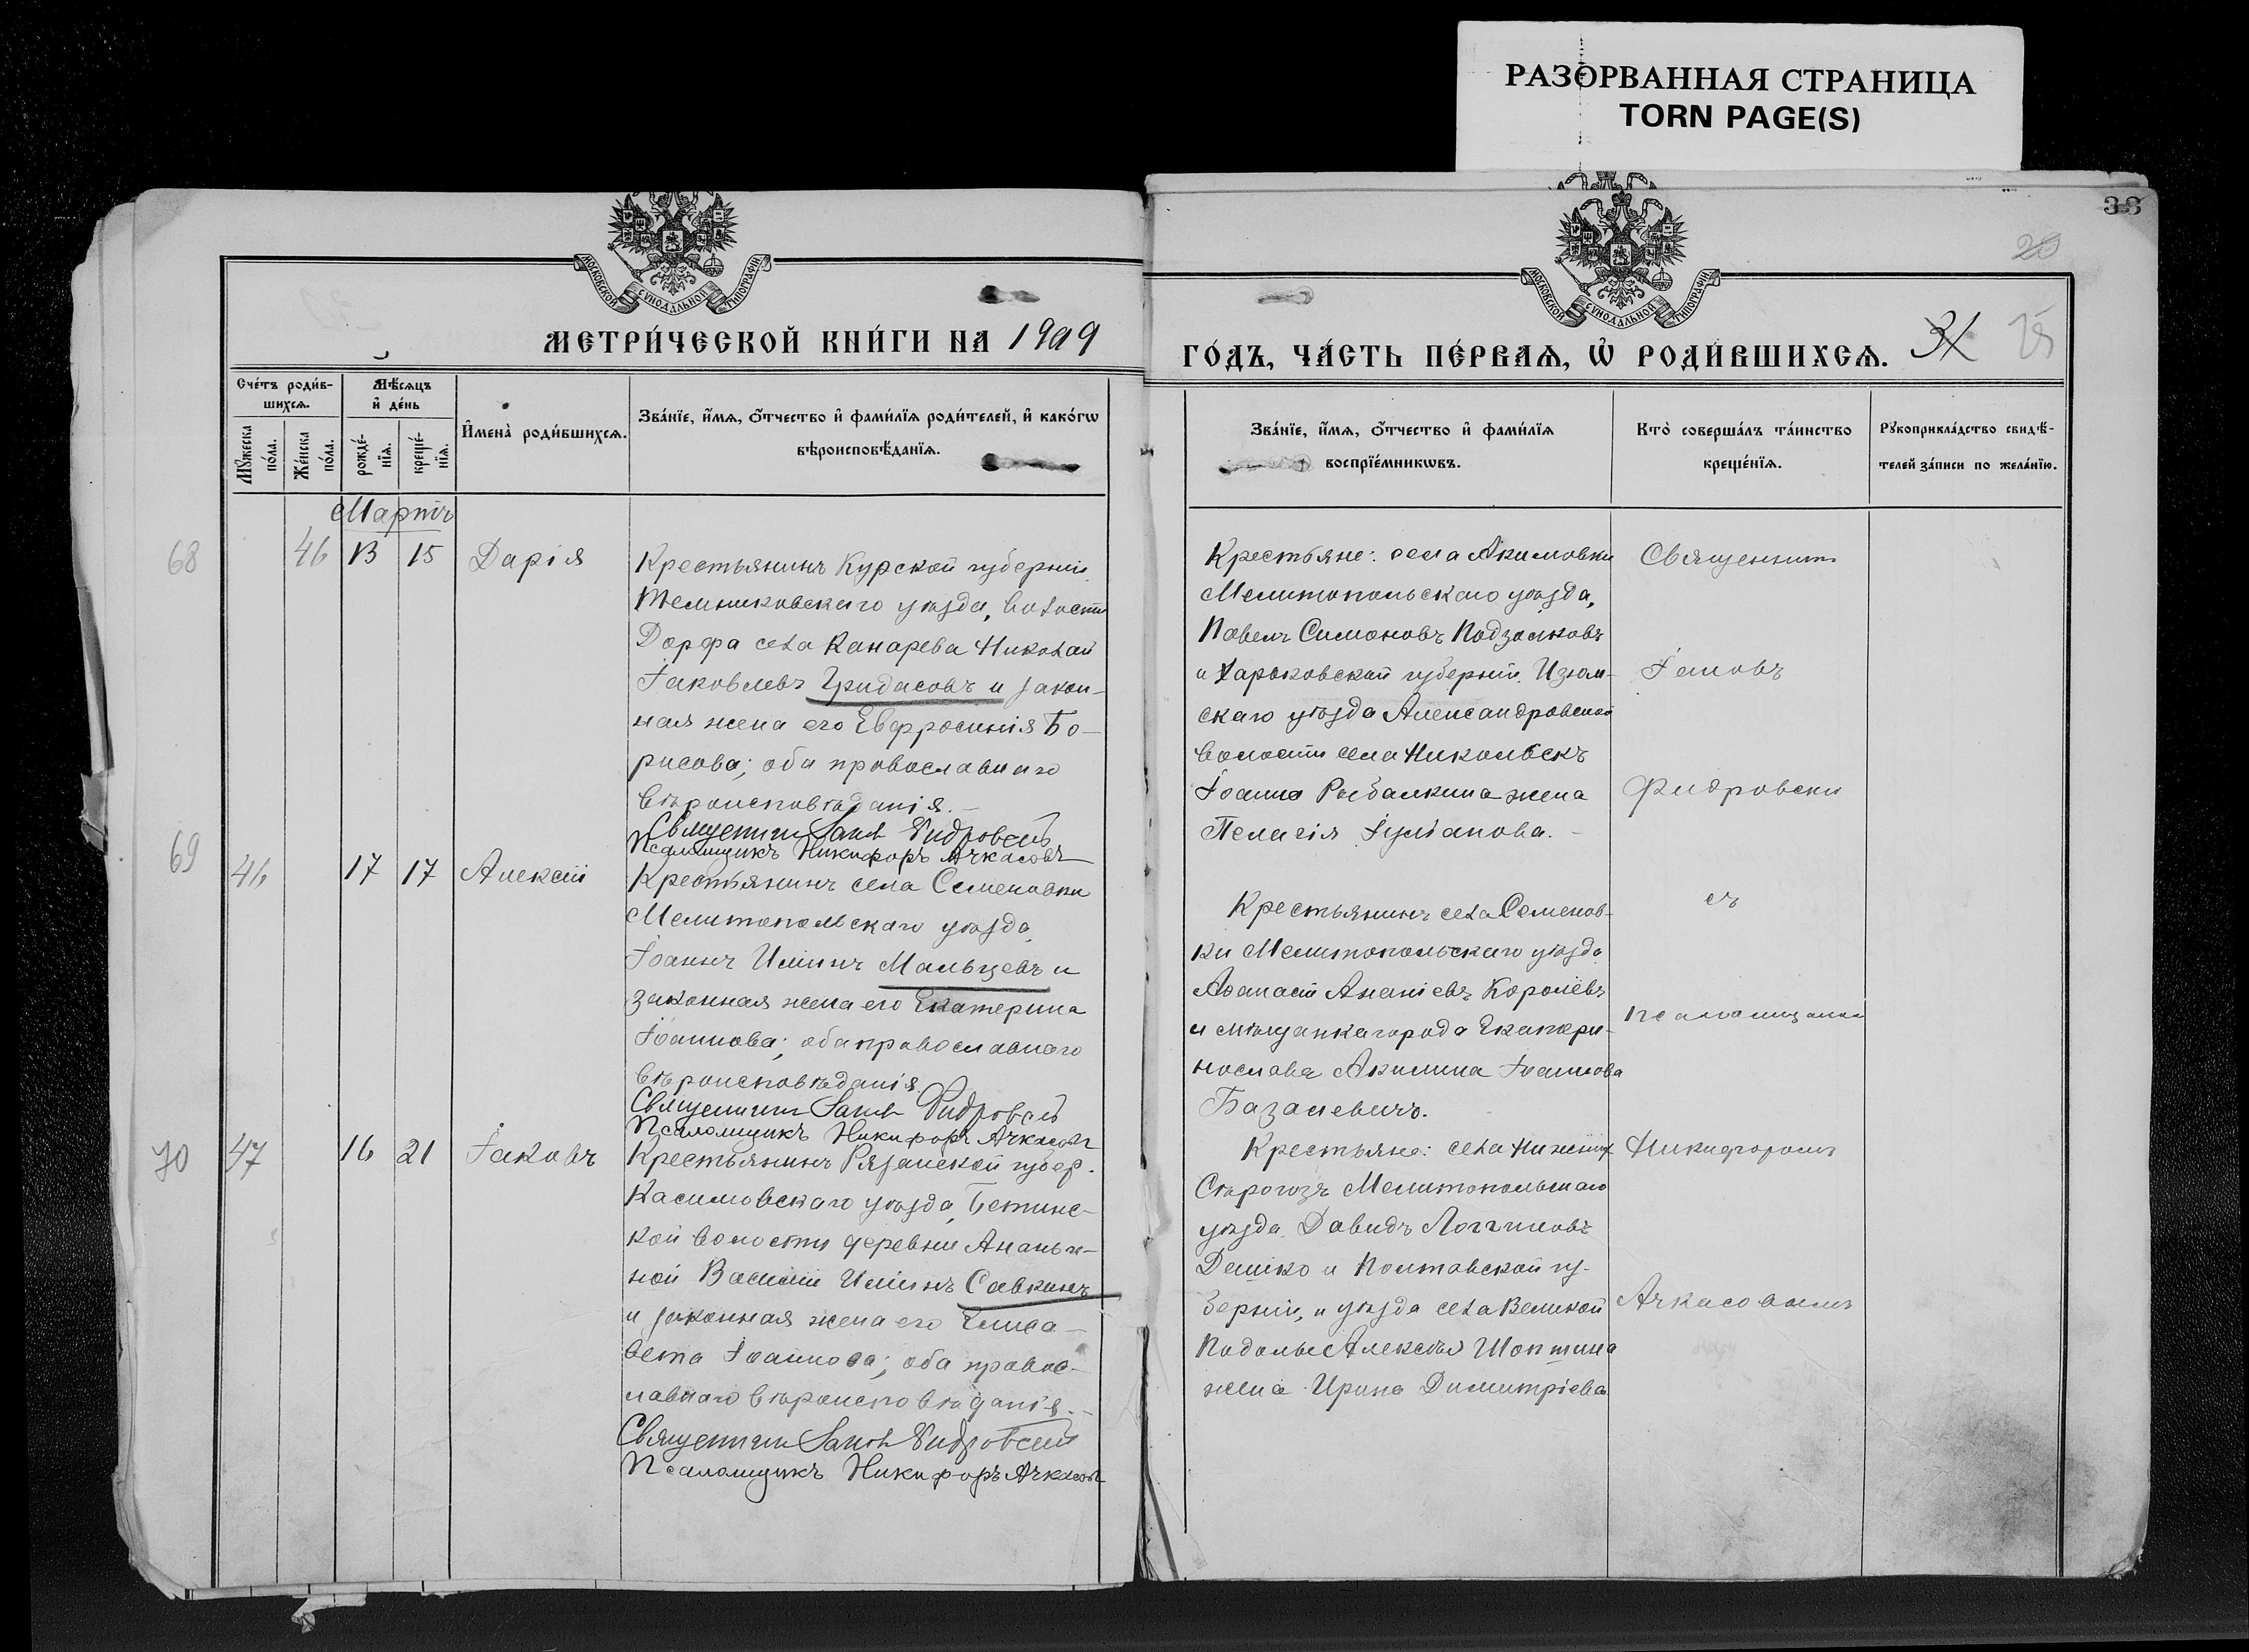 РАЗОРВАННАЯ СТРАНИЦА
TORN PAGE(S)
33
20
МОСКОВСКОЙ СѴНОДАЛЬНОЙ ТИПОГРАФІИ
МОСКОВСКОЙ СѴНОДАЛЬНОЙ ТИПОГРАФІИ
МЕТРИ́ЧЕСКОЙ КНИ́ГИ НА 1909
ГО́ДЪ, ЧА́СТЬ ПЕ́РВАѦ, Ѡ҆ РОДИ́ВШИХСѦ. 31
Сче́тъ роди́в-
шихсѧ.
Мѣ́сѧцъ
и҆ де́нь
Мꙋ́жеска
по́ла.
Же́нска
по́ла.
рожде́-
нїѧ.
креще́-
нїѧ.
И҆мена̀ роди́вшихсѧ.
Зва́нїе, и҆́мѧ, ѻ҆́тчество и҆ фами́лїѧ роди́телей, и҆ како́гѡ
вѣроисповѣ́данїѧ.
Зва́нїе, и҆́мѧ, ѻ҆́тчество и҆ фами́лїѧ
воспрїе́мникѡвъ.
Кто̀ соверша́лъ та́инство
креще́нїѧ.
Рꙋкоприкла́дство свидѣ́-
телей за́писи по жела́нїю.
Мартъ
68 46 13 15 Дарія
Крестьянинъ Курской губерніи
Темниковскаго уѣзда, волости
Дорфа села Канарева Николай
Іаковлевъ Гридасовъ и закон-
ная жена его Евфросинія Бо-
рисова; оба православнаго
вѣроисповѣданія.-
Священникъ Іаковъ Фидровскій
Псаломщикъ Никифоръ Ачкасовъ
Крестьяне: села Акимовки
Мелитопольскаго уѣзда,
Павелъ Симоновъ Подзолковъ
и Харьковской губерніи Изюм-
скаго уѣзда Александровской
волости села Никольскъ
Іоанна Рыбалкина жена
Пелагія Іуліанова.-
Священникъ
Іаковъ
Фидровскій
69 46 17 17 Алексій
Крестьянинъ села Семеновки
Мелитопольскаго уѣзда
Іоаннъ Иліинъ Мальцевъ и
законная жена его Екатерина
Іоаннова; оба православнаго
вѣроисповѣданія
Священникъ Іаковъ Фидровскій
Псаломщикъ Никифоръ Ачкасовъ
Крестьянинъ села Семенов-
ки Мелитопольскаго уѣзда
Аѳанасій Ананіевъ Королёвъ
и мѣщанка города Екатери-
нослава Акилина Іоаннова
Базалевичъ.
съ
псаломщикомъ
70 47 16 21 Іаковъ
Крестьянинъ Рязанской губер.
Касимовскаго уѣзда, Бетинс-
кой волости деревни Ананьи-
ной Василій Иліинъ Савкинъ
и законная жена его Елиса-
вета Іоаннова; оба правос-
лавнаго вѣроисповѣданія.-
Священникъ Іаковъ Фидровскій
Псаломщикъ Никифоръ Ачкасовъ
Крестьяне: села Нижнихъ
Сѣрогозъ Мелитопольскаго
уѣзда Давидъ Логгиновъ
Дешко и Полтавской гу-
берніи, и уѣзда села Великой
Подолы Алексѣя Шоптина
жена Ирина Димитріева
Никифоромъ
Ачкасовымъ